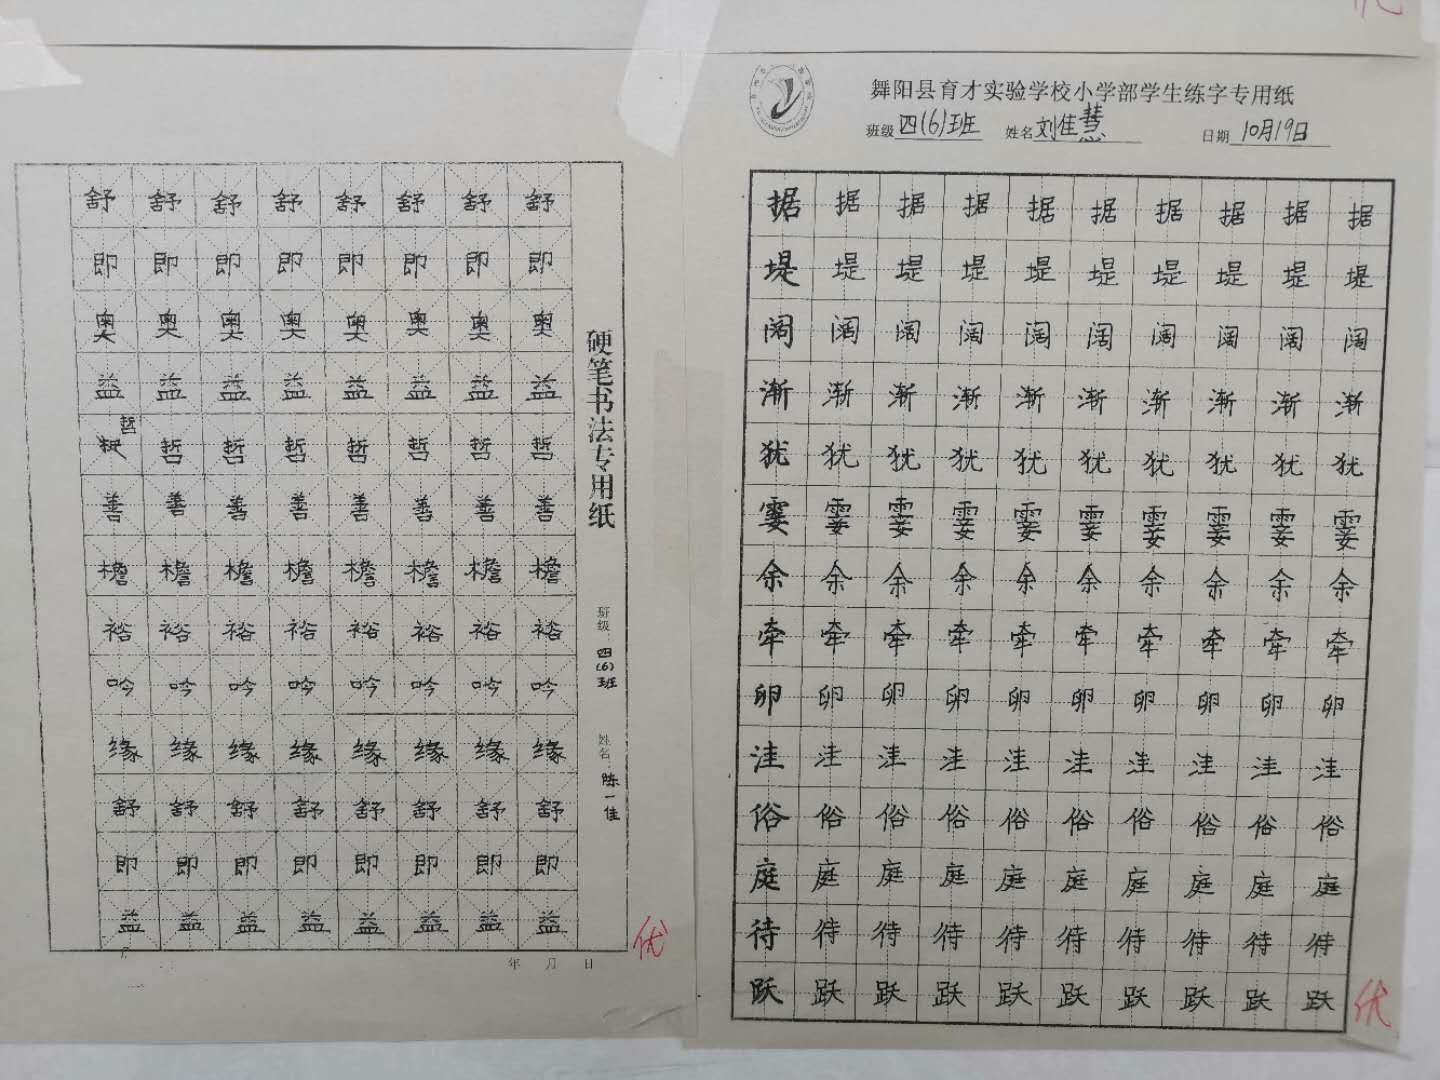 舒 舒 舒 舒 舒 舒 舒 舒
即 即 即 即 即 即 即 即
奥 奥 奥 奥 奥 奥 奥 奥
益 益 益 益 益 益 益 益
哲 哲 哲 哲 哲 哲 哲 哲
善 善 善 善 善 善 善 善
檐 檐 檐 檐 檐 檐 檐 檐
裕 裕 裕 裕 裕 裕 裕 裕
吟 吟 吟 吟 吟 吟 吟 吟
缘 缘 缘 缘 缘 缘 缘 缘
舒 舒 舒 舒 舒 舒 舒 舒
即 即 即 即 即 即 即 即
益 益 益 益 益 益 益 益
硬笔书法专用纸
班级:四(6)班 姓名 陈一佳
年 月 日
优
舞阳县育才实验学校小学部学生练字专用纸
班级 四(6)班 姓名 刘佳慧 日期 10月19日
据 据 据 据 据 据 据 据 据 据
堤 堤 堤 堤 堤 堤 堤 堤 堤 堤
阔 阔 阔 阔 阔 阔 阔 阔 阔 阔
渐 渐 渐 渐 渐 渐 渐 渐 渐 渐
犹 犹 犹 犹 犹 犹 犹 犹 犹 犹
霎 霎 霎 霎 霎 霎 霎 霎 霎 霎
余 余 余 余 余 余 余 余 余 余
牵 牵 牵 牵 牵 牵 牵 牵 牵 牵
卵 卵 卵 卵 卵 卵 卵 卵 卵 卵
洼 洼 洼 洼 洼 洼 洼 洼 洼 洼
俗 俗 俗 俗 俗 俗 俗 俗 俗 俗
庭 庭 庭 庭 庭 庭 庭 庭 庭 庭
待 待 待 待 待 待 待 待 待 待
跃 跃 跃 跃 跃 跃 跃 跃 跃 跃
优